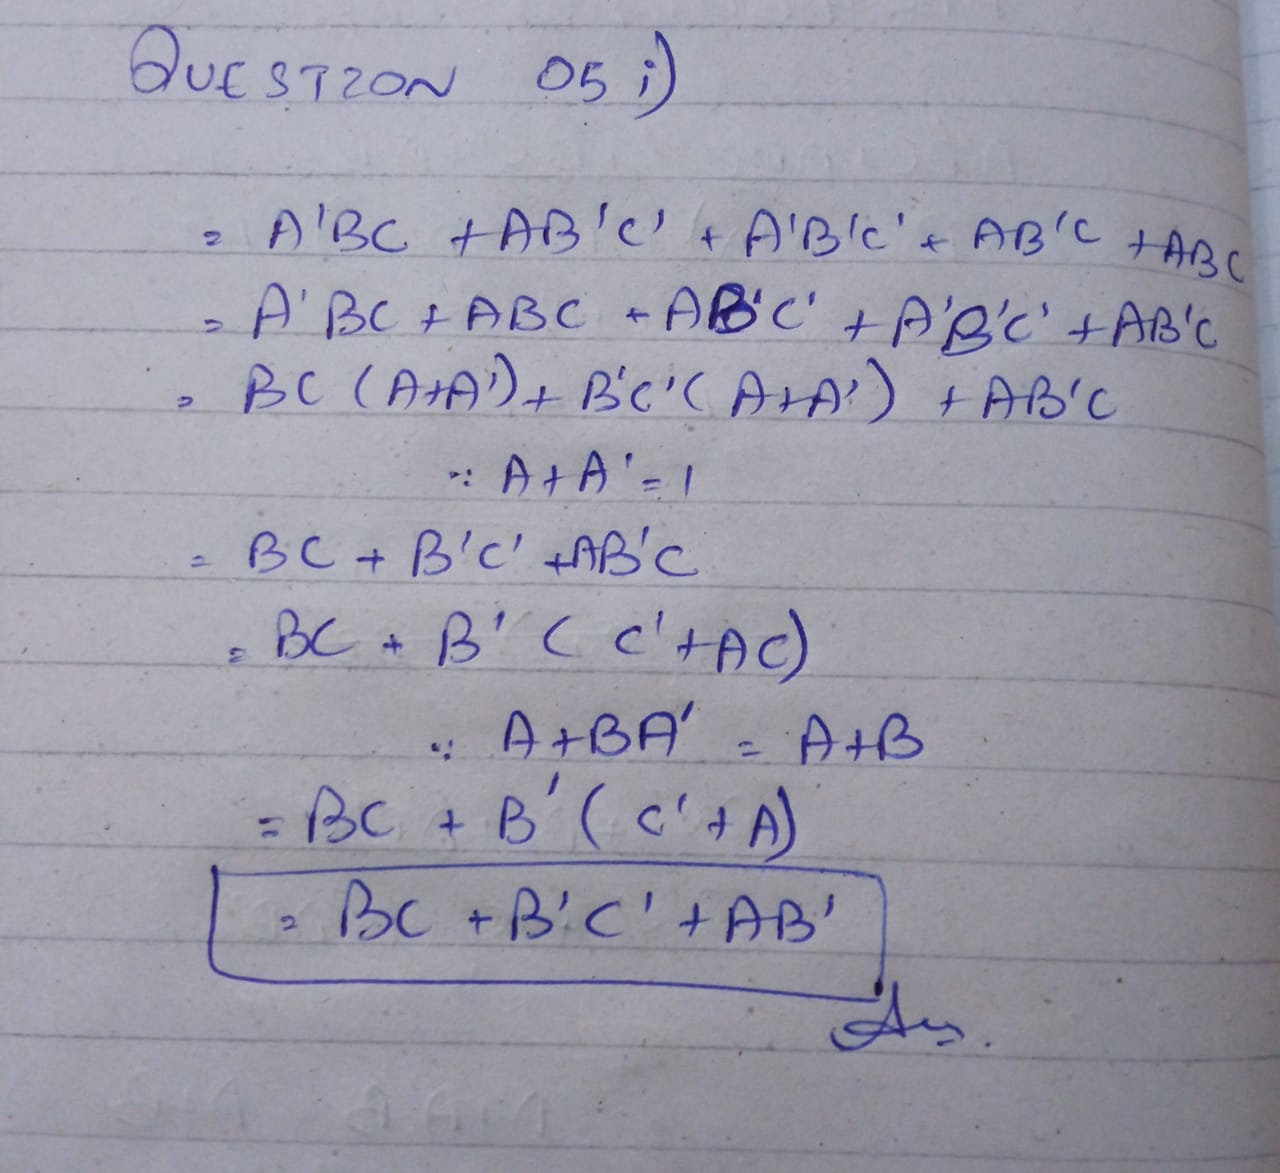 QUESTION 05 i)
= A'BC + AB'C' + A'B'C' + AB'C + ABC
= A'BC + ABC + AB'C' + A'B'C' + AB'C
= BC (A+A') + B'C' (A+A') + AB'C
∵ A+A' = 1
= BC + B'C' + AB'C
= BC + B' (C'+AC)
∵ A+BA' = A+B
= BC + B' (C'+A)
= BC + B'C' + AB'
Ans.